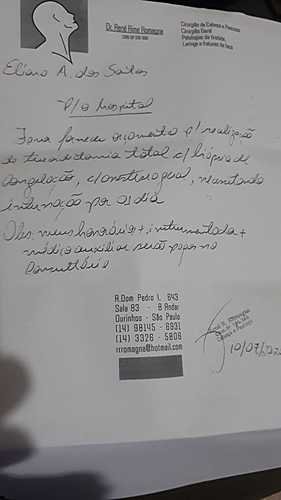 Dr. René Rime Romagna
Cirurgião de Cabeça e Pescoço
Cirurgia Geral
Patologias da Tireóide,
Laringe e Tumores da Boca
Eliana A. dos Santos
P/ o hospital
Favor fornecer orçamento p/ realização
de tireoidectomia total c/ biópsia de
congelação, c/ anestesia geral, necessitando
internação por 01 dia
Obs: meus honorários + instrumentador +
médico auxiliar serão pagos no
consultório
R.Dom Pedro I, 643
Sala 83 - 8 Andar
Ourinhos - São Paulo
(14) 98145 - 6931
(14) 3326 - 5806
rrromagna@hotmail.com
10/07/202